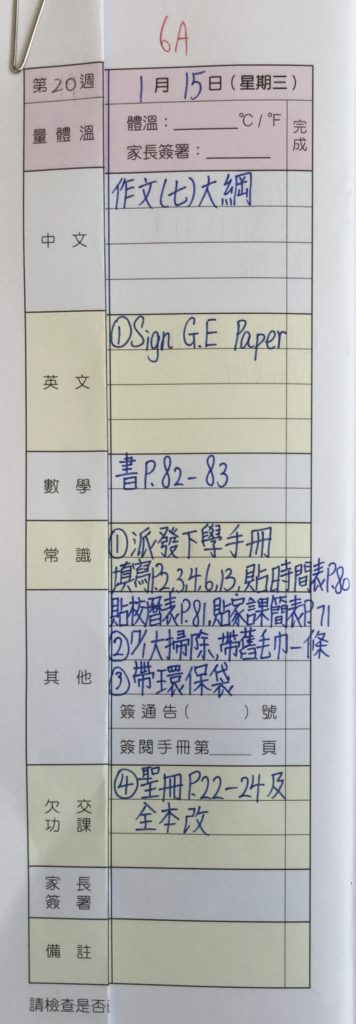 6A
第20週 1月15日(星期三)
量體溫 體溫:______℃/℉ 完成
家長簽署:______
中文 作文(七)大綱
英文 ①Sign G.E Paper
數學 書P.82-83
常識 ①派發下學手冊
填寫P.2,3,4,6,13,貼時間表P.80
其他 貼校曆表P.81,貼家課簡表P.71
②17/1大掃除、帶舊毛巾一條
③帶環保袋
簽通告( )號
簽閱手冊第____頁
欠交功課 ④聖冊P.22-24及
全本改
家長簽署
備註
請檢查是否